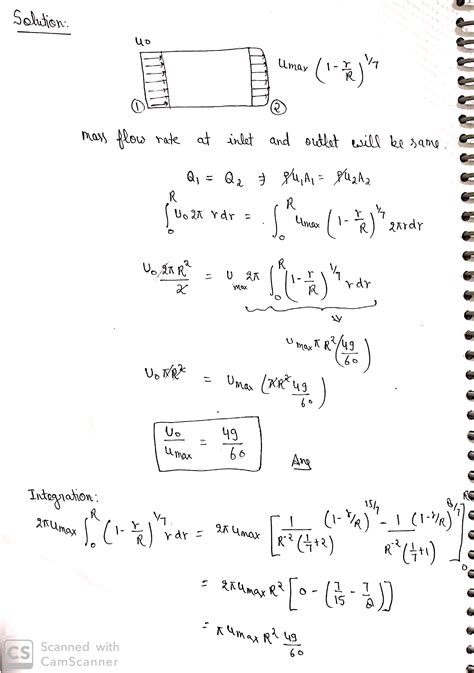 Solution:
u₀
u_max (1 - r/R)^1/7
① ②
mass flow rate at inlet and outlet will be same.
Q₁ = Q₂ ∌ ρu₁A₁ = ρu₂A₂
∫₀^R u₀ 2π r dr = ∫₀^R u_max (1 - r/R)^1/7 2π r dr
u₀ 2π R²/2 = u_max 2π ∫₀^R (1 - r/R)^1/7 r dr
u_max π R² (49/60)
u₀ πR² = u_max (πR² 49/60)
u₀/u_max = 49/60
Ans
Integration:
2π u_max ∫₀^R (1 - r/R)^1/7 r dr = 2π u_max [ 1/(R⁻² (1/7 + 2)) (1 - r/R)^15/7 - 1/(R⁻² (1/7 + 1)) (1 - r/R)^8/7 ]₀
= 2π u_max R² [0 - (7/15 - 7/8)]
= π u_max R² 49/60
CS Scanned with
CamScanner